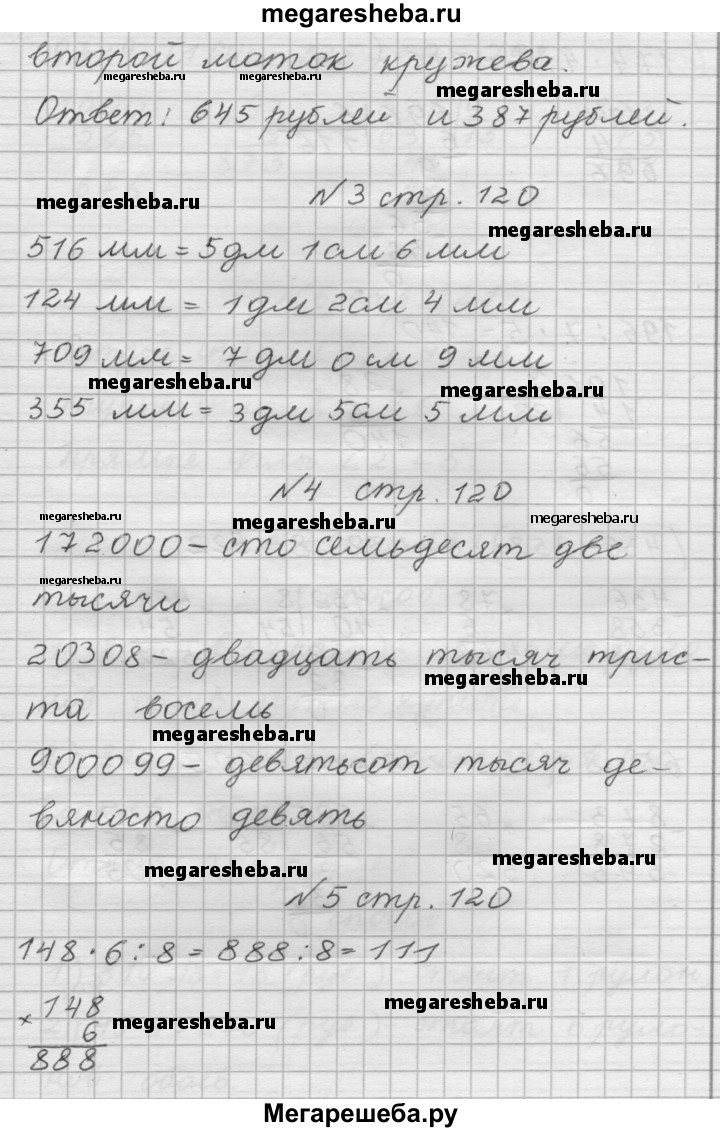 megaresheba.ru
второй моток кружева.
megaresheba.ru megaresheba.ru megaresheba.ru
Ответ: 645 рублей и 387 рублей.
megaresheba.ru N3 стр. 120
megaresheba.ru
516 мм = 5дм 1см 6 мм
124 мм = 1дм 2см 4 мм
709 мм = 7 дм 0 см 9 мм
megaresheba.ru megaresheba.ru
355 мм = 3дм 5см 5 мм
N4 стр. 120
megaresheba.ru megaresheba.ru megaresheba.ru
172000 - сто семьдесят две
megaresheba.ru
тысячи
20308 - двадцать тысяч трис-
megaresheba.ru
та восемь
megaresheba.ru
900099 - девятьсот тысяч де-
вяносто девять
megaresheba.ru
megaresheba.ru
N5 стр. 120
148 · 6 : 8 = 888 : 8 = 111
× 148
megaresheba.ru
6
megaresheba.ru
888
Мегарешеба.ру